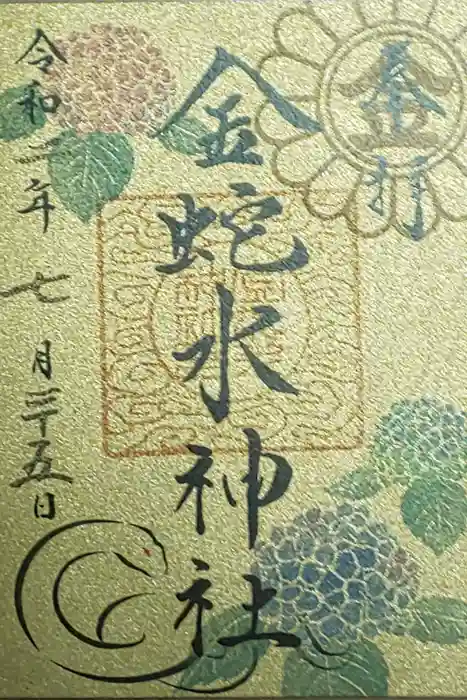 奉拝
金蛇水神社
令和二年七月二十五日